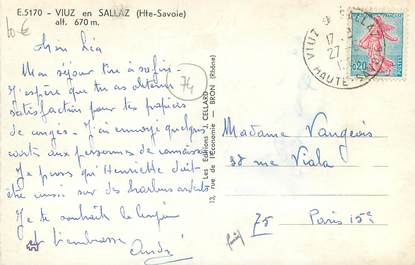 E.5170 - VIUZ en SALLAZ (Hte-Savoie)
alt. 670 m.
10€
Mon séjour tire à sa fin.
J'espère que tu as obtenu
satisfaction pour tes papiers
de congés. J'ai envoyé quelques
cartes aux personnes de connaissance
Je pense qu'Henriette doit
être aussi sur des charbons ardents
Je te souhaite le bonjour
et t'embrasse
André
74
Les Editions CELLARD
13, rue de l'Economie — BRON (Rhône)
VIUZ EN SALLAZ
17
27
HAUTE-SAVOIE
0,20
Madame Vangeois
38 rue Viala
75 Paris 15e